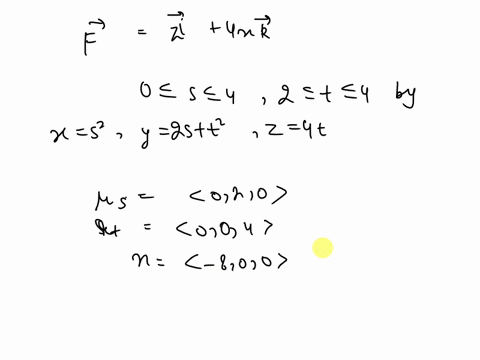 F⃗ = zi⃗ + 4xk⃗
0 ≤ s ≤ 4 , 2 ≤ t ≤ 4 by
x = s² , y = 2s + t² , z = 4t
r_s = <0, 2, 0>
r_t = <0, 0, 4>
n = <-8, 0, 0>